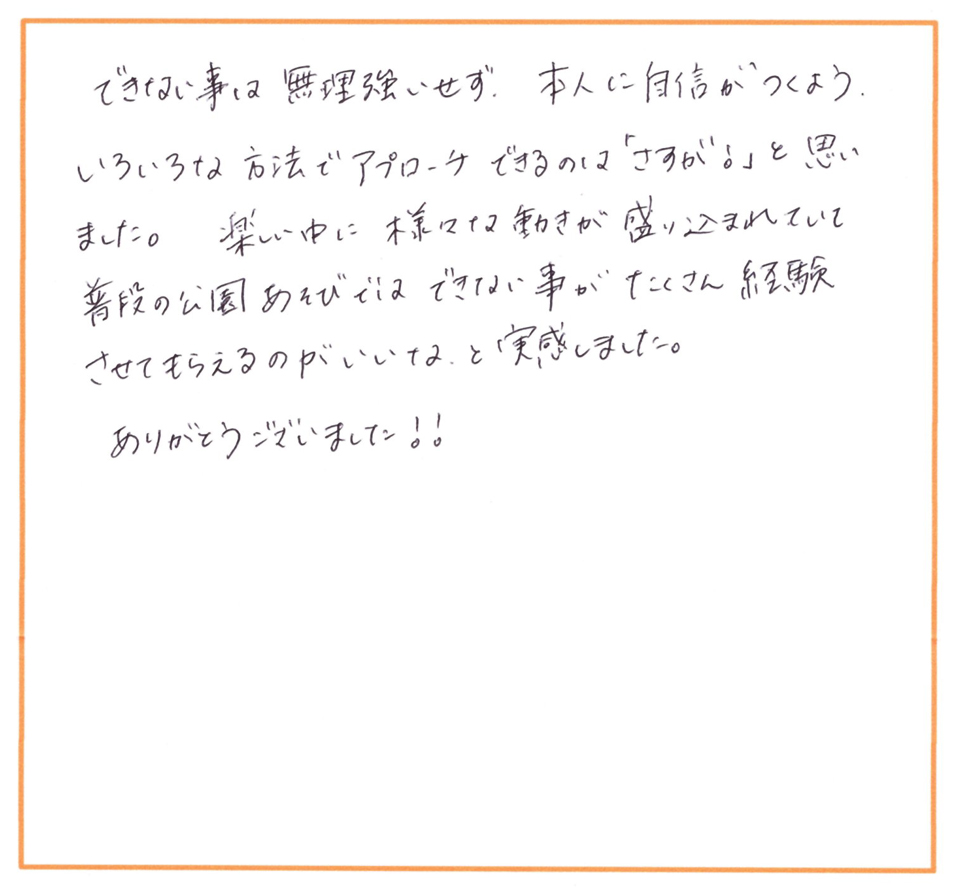 できない事は無理強いせず、本人に自信がつくよう、
いろいろな方法でアプローチできるのは「さすが!」と思い
ました。 楽しい中に様々な動きが盛り込まれていて
普段の公園あそびではできない事がたくさん経験
させてもらえるのがいいな、と実感しました。
ありがとうございました!!